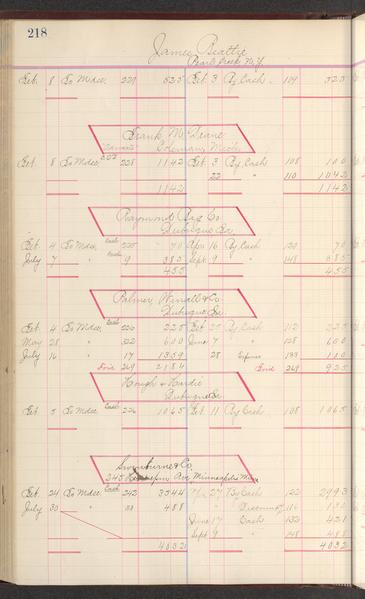 218
James Beattie
Pearl Creek N.Y.
Oct. 8 To Mdse. 229 525 Oct 3 By Cash 109 525
Frank M.
Coleman, Mich
Oct 8 To Mdse. 228 1142 Oct. 3 By Cash 108 100
22 " 110 1042
1142 1142
Raymond Co
Dubuque Ia.
Oct 4 To Mdse 225 70 Apr 16 By Cash 120 70
July 7 " 9 385 Sept 9 " 148 385
455 455
Palmer, & Co.
Dubuque Ia.
Oct 4 To Mdse 220 225 Oct 25 By Cash 112 225
May 28 " 322 600 June 7 " 128 600
July 16 " 17 1359 28 Expense 133 110
Ford 269 2184 Ford 269 925
Hough & Hardie
Dubuque Ia.
Oct 5 To Mdse Cash 226 1065 Oct 11 By Cash 108 1065
Swinburne & Co.
245 Hennepin Ave Minneapolis Minn
Oct 24 To Mdse Cash 242 3544 27 By Cash 122 2993
July 30 " 33 488 " Discount 116
June 17 Cash 132 421
Sept 9 " 148 488
4032 4032